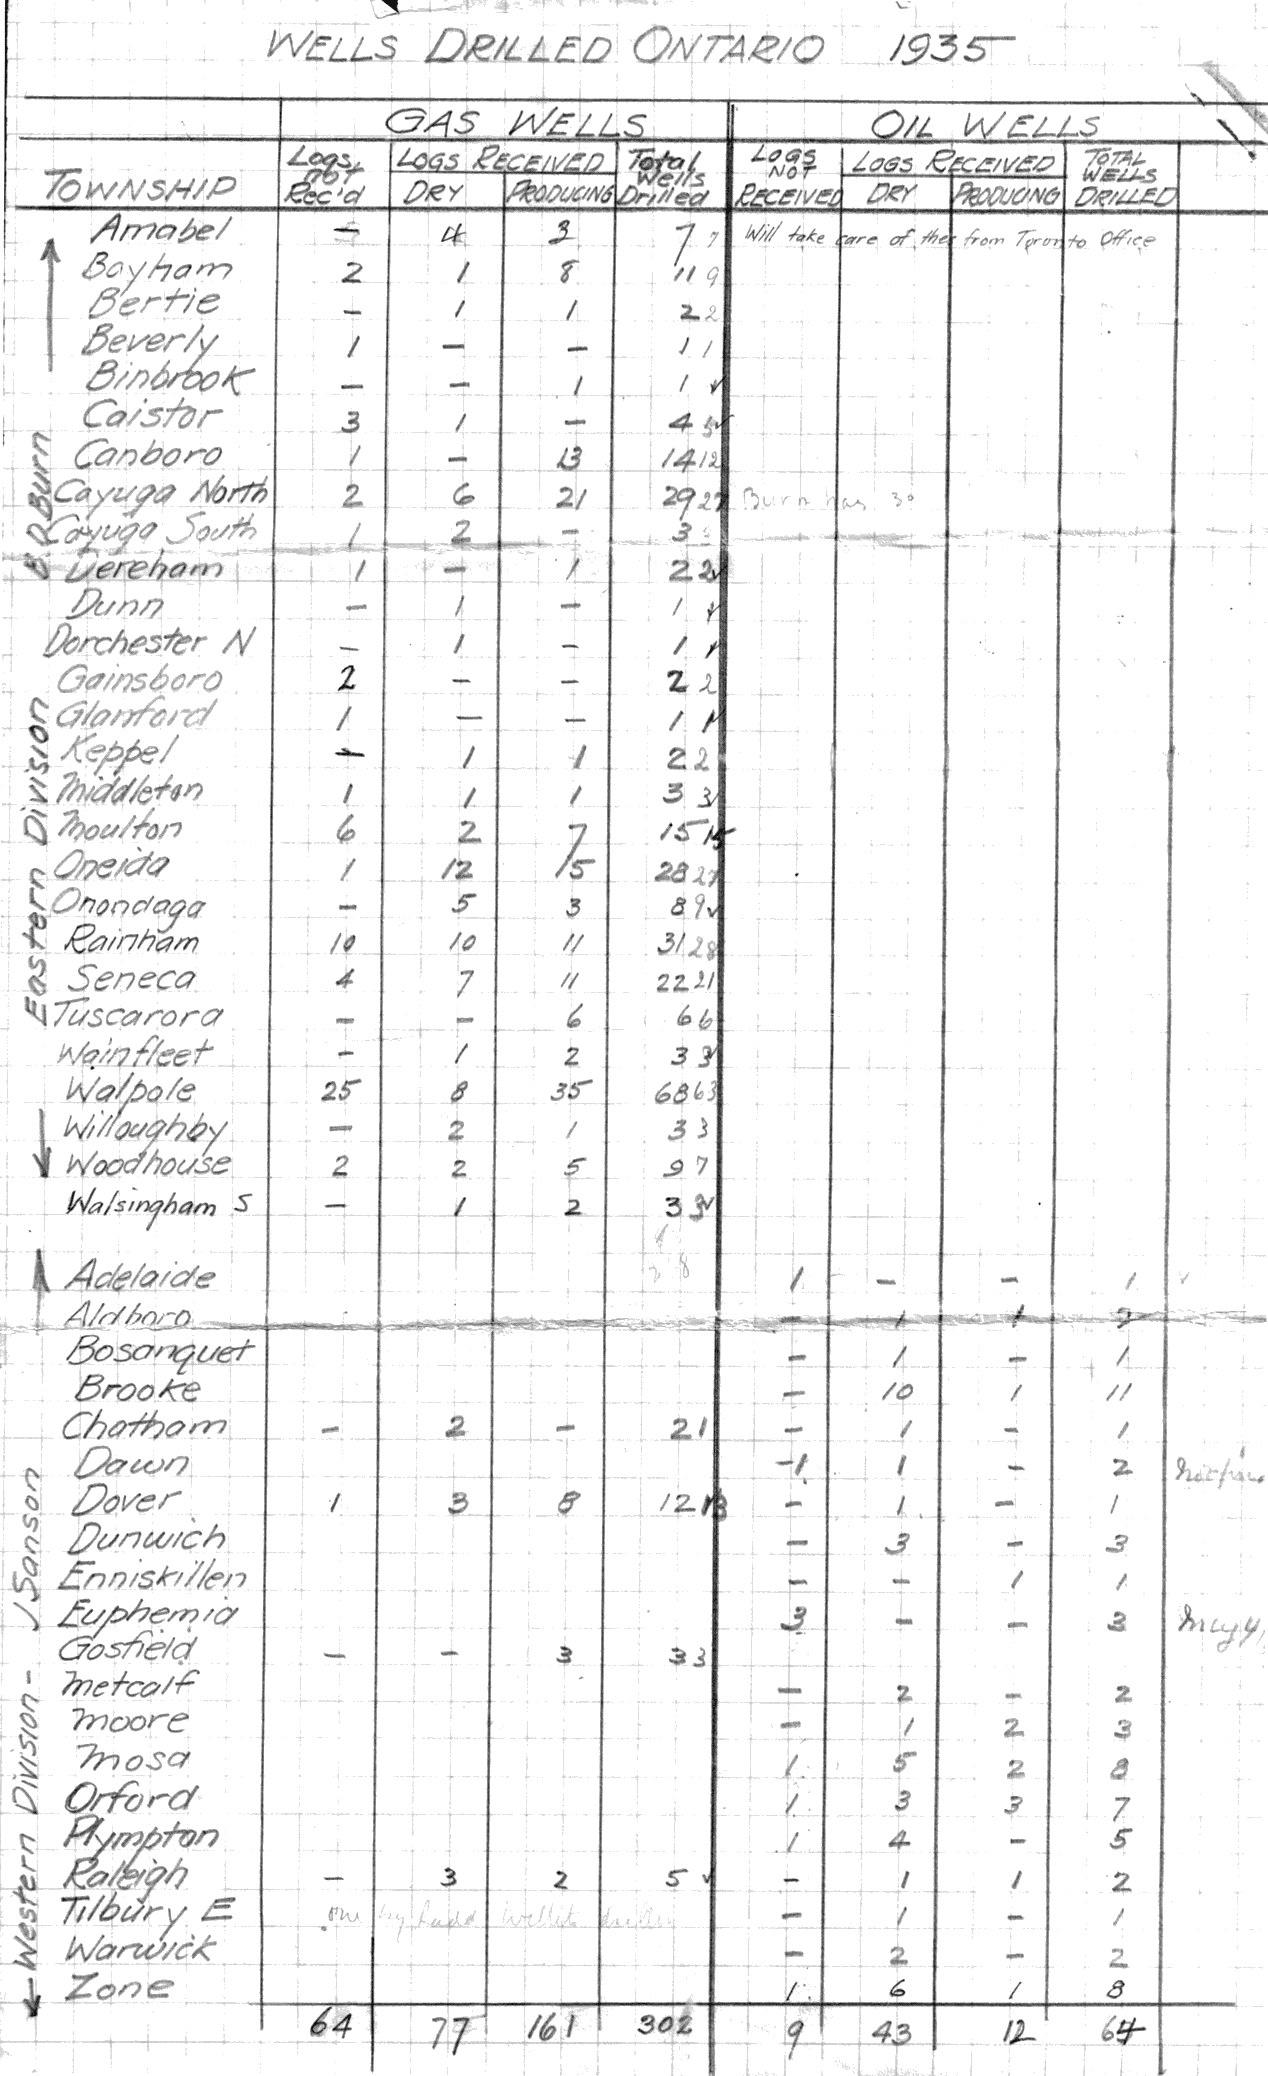 WELLS DRILLED ONTARIO 1935
GAS WELLS OIL WELLS
TOWNSHIP Logs not Rec'd LOGS RECEIVED DRY PRODUCING Total Wells Drilled LOGS NOT RECEIVED LOGS RECEIVED DRY PRODUCING TOTAL WELLS DRILLED
Amabel - 4 3 7 7 Will take care of thes from Toronto Office
Bayham 2 1 8 11 9
Bertie - 1 1 2 2
Beverly 1 - - 1 1
Binbrook - - 1 1 ✓
Caistor 3 1 - 4 ✓
Canboro 1 - 13 14 12
Cayuga North 2 6 21 29 27 Burn has 30
Cayuga South 1 2 - 3 3
Dereham 1 - 1 2 2 ✓
Dunn - 1 - 1 ✓
Dorchester N - 1 - 1 ✓
Gainsboro 2 - - 2 2
Glanford 1 - - 1 1 ✓
Keppel - 1 1 2 2
Middleton 1 1 1 3 3 ✓
Moulton 6 2 7 15 15
Oneida 1 12 15 28 27
Onondaga - 5 3 8 9 ✓
Rainham 10 10 11 31 28
Seneca 4 7 11 22 21
Tuscarora - - 6 6 6
Wainfleet - 1 2 3 3 ✓
Walpole 25 8 35 68 63
Willoughby - 2 1 3 3
Woodhouse 2 2 5 9 7
Walsingham S - 1 2 3 3 ✓
E D Burn
Eastern Division
Adelaide 1 - - 1 ✓
Aldboro - 1 1 2
Bosanquet - 1 - 1
Brooke - 10 1 11
Chatham - 2 - 2 1 - 1 - 1
Dawn -1 1 - 2
Dover 1 3 8 12 13 - 1 - 1
Dunwich - 3 - 3
Enniskillen - - 1 1
Euphemia 3 - - 3
Gosfield - - 3 3 3
Metcalf - 2 - 2
Moore - 1 2 3
Mosa 1 5 2 8
Orford 1 3 3 7
Plympton 1 4 - 5
Raleigh - 3 2 5 ✓ - 1 1 2
Tilbury E - 1 - 1
Warwick - 2 - 2
Zone 1 6 1 8
Western Division - J Sanson
64 77 161 302 9 43 12 64